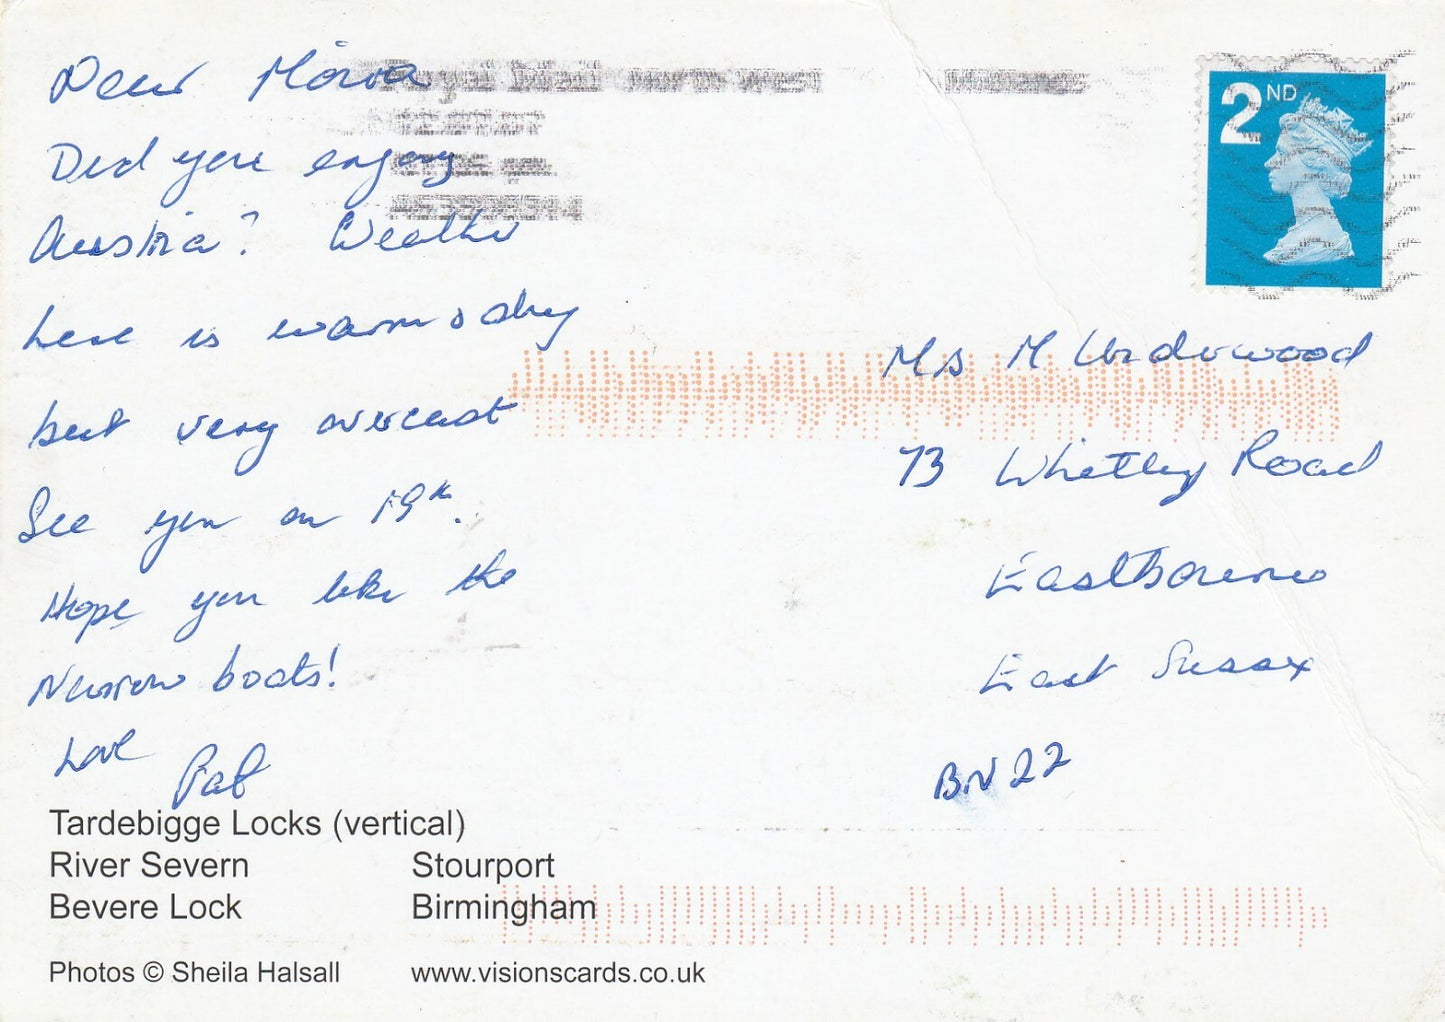 Dear Moira
Royal Mail North West Midlands
Did you enjoy
Austria? Weather
here is warm & dry
but very overcast
See you on 19th.
Hope you like the
Narrow boats!
Love Pat
2ND
Ms M Underwood
73 Whitley Road
Eastbourne
East Sussex
BN22
Tardebigge Locks (vertical)
River Severn Stourport
Bevere Lock Birmingham
Photos © Sheila Halsall www.visionscards.co.uk